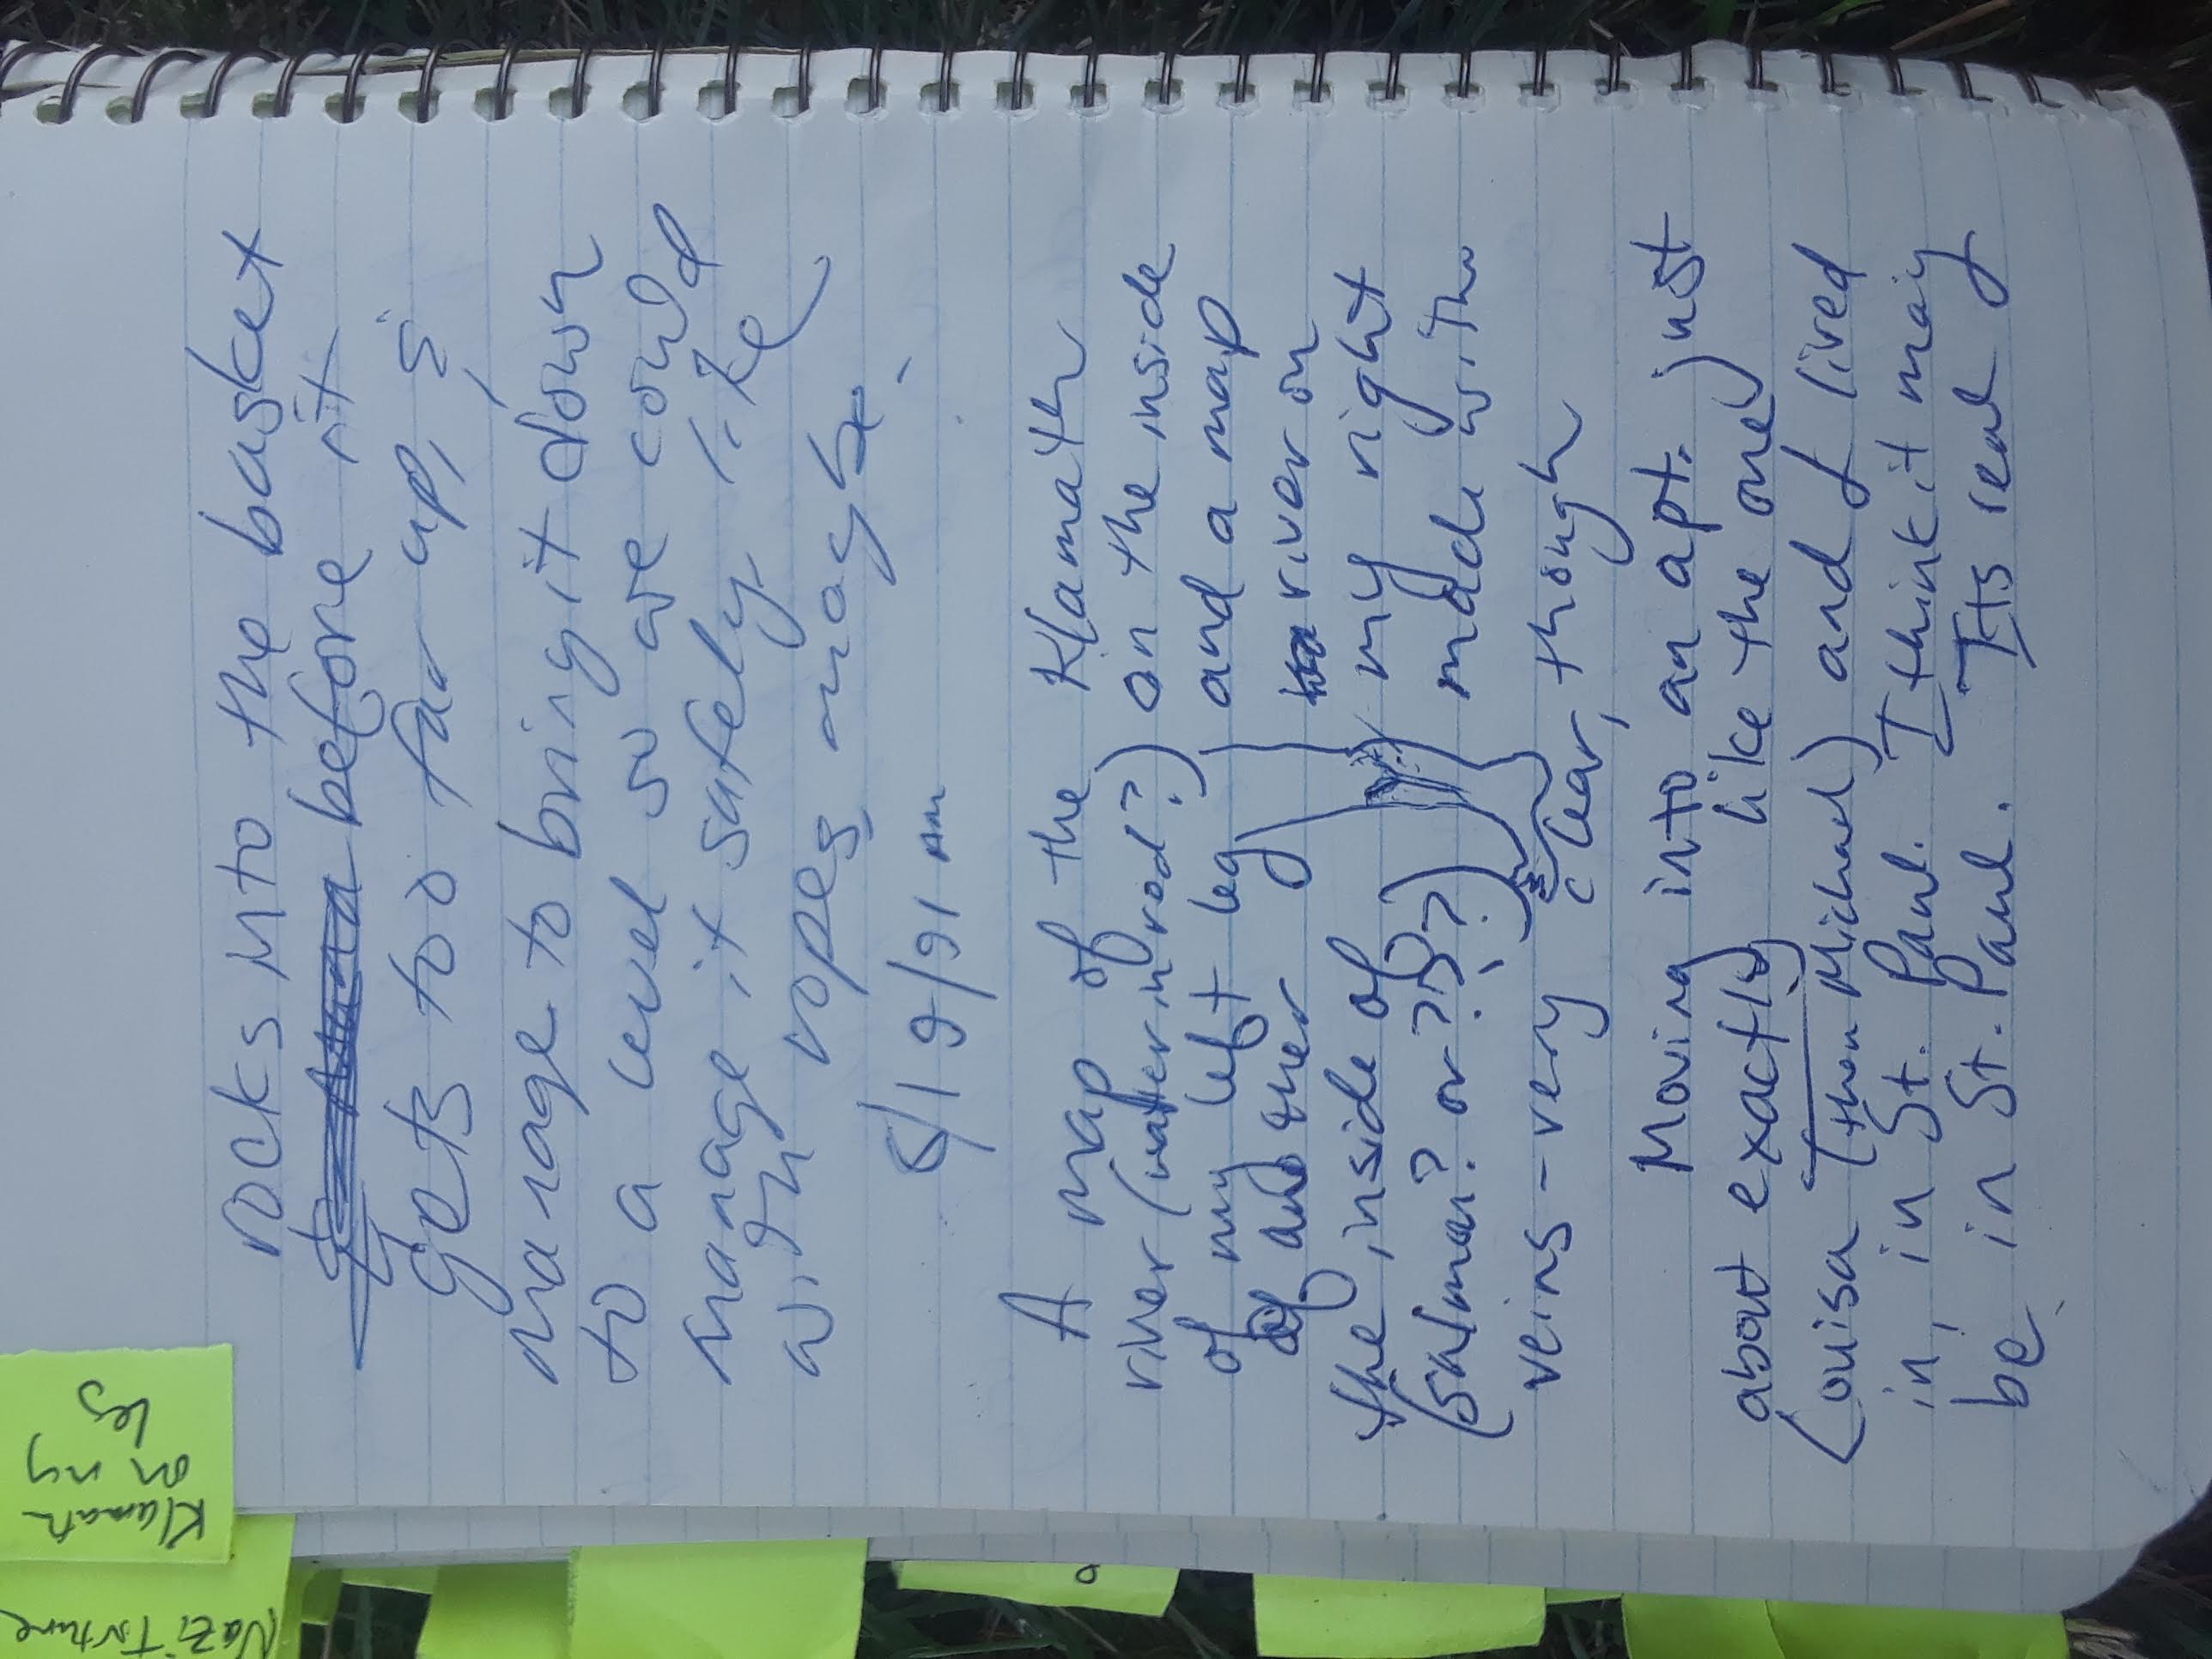 rocks into the basket
before it
gets too far up, &
manage to bring it down
to a level so we could
manage it safely - like
with ropes maybe.
6/19/91
A map of the Klamath
river (watering rod?) on the inside
of my left leg and a map
of another river on
the inside of my right
(Salmon? or ???) made with
veins - very clear, though
Moving into an apt. just
about exactly like the one
Louisa (then Michael) and I lived
in, in St. Paul. I think it may
be in St. Paul. Its real
Klamath
on my
leg
Nazi Torture